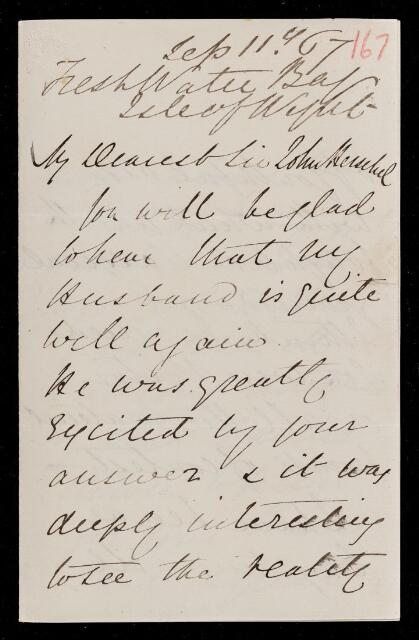 Sep 11th 67
167
Fresh Water Bay
Isle of Wight
My Dearest Sir John Herschel
You will be glad
to hear that my
Husband is quite
well again.
He was greatly
excited by your
answer & it was
deeply interesting
to see the reality